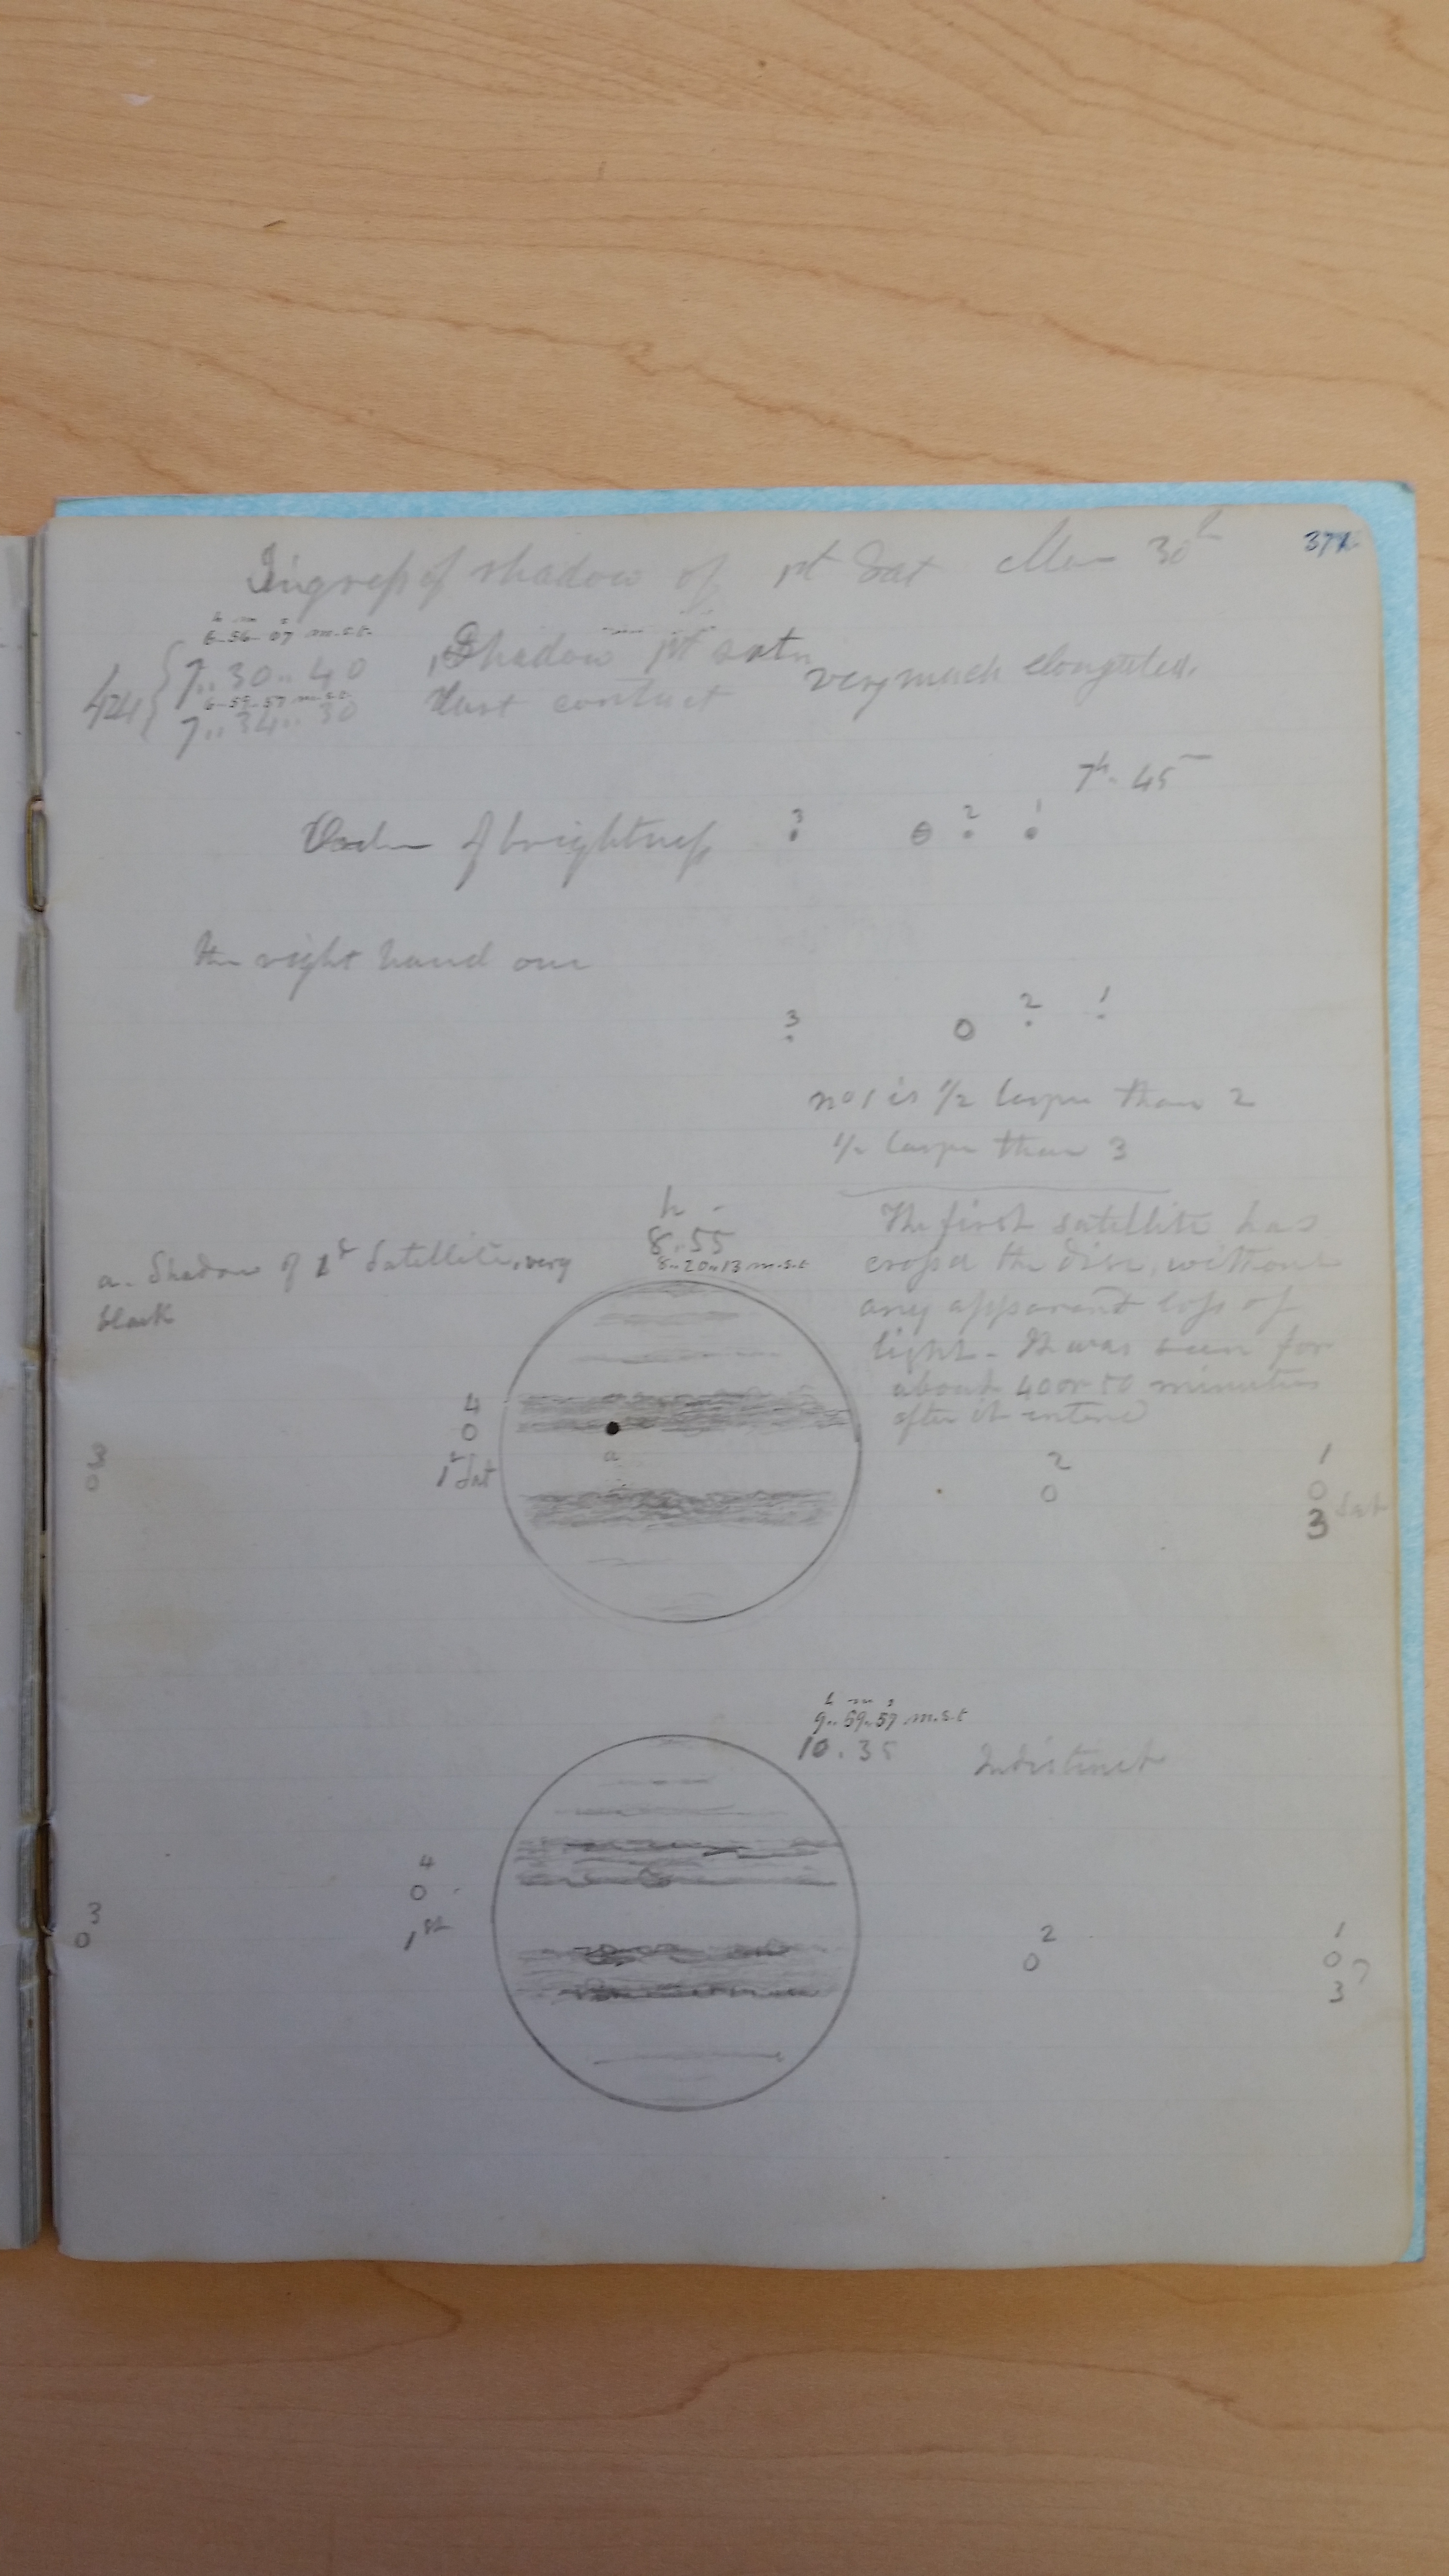 Ingress of shadow of 1st Sat 30th
37
h m s
6-56-07 m.s.t.
7..30..40 Shadow 1st satn very much elongated.
6-59-57 m.s.t.
7..34..30 last contact
7h. 45m
Order of brightness 3 2 1
the right hand one
3 2 1
no 1 is 1/2 larger than 2
1/2 larger than 3
h m
8.55
8..20..13 m.s.t
a. Shadow of 1st Satellite, very
black
The first satellite has
crossed the disc, without
any apparent loss of
light - It was seen for
about 40 or 50 minutes
after it entered
4
0
1st Sat
a
3
0
2
0
1
0
3 Sat
h m s
9..59..57 m.s.t
10.35 Indistinct
4
0
1st
3
0
2
0
1
0 ?
3